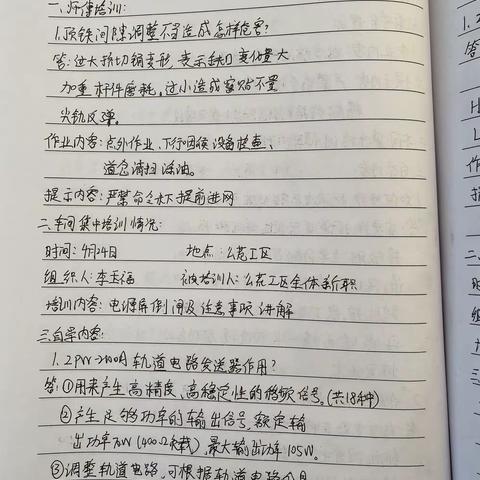 一、师傅培训:
1.顶铁间隙调整不当造成怎样危害?
答:过大掰切钢变形,表示缺口变化量大
加重杆件磨耗,过小造成密贴不量
尖轨反弹。
作业内容:点外作业、下行咽候设备检查、
道岔清扫涂油。
提示内容:严禁命令未下提前进网
二、车间集中培训情况:
时间:4月24日 地点:公荒工区
组织人:李玉福 被培训人:公荒工区全体新职
培训内容:电源屏倒闸及注意事项讲解
三、自学内容:
1.ZPW-2000A轨道电路发送器作用?
答:①用来产生高精度、高稳定性的移频信号。(共18种)
②产生足够功率的输出信号,额定输
出功率70W(400Ω负载),最大输出功率105W。
③调整轨道电路,可根据轨道电路